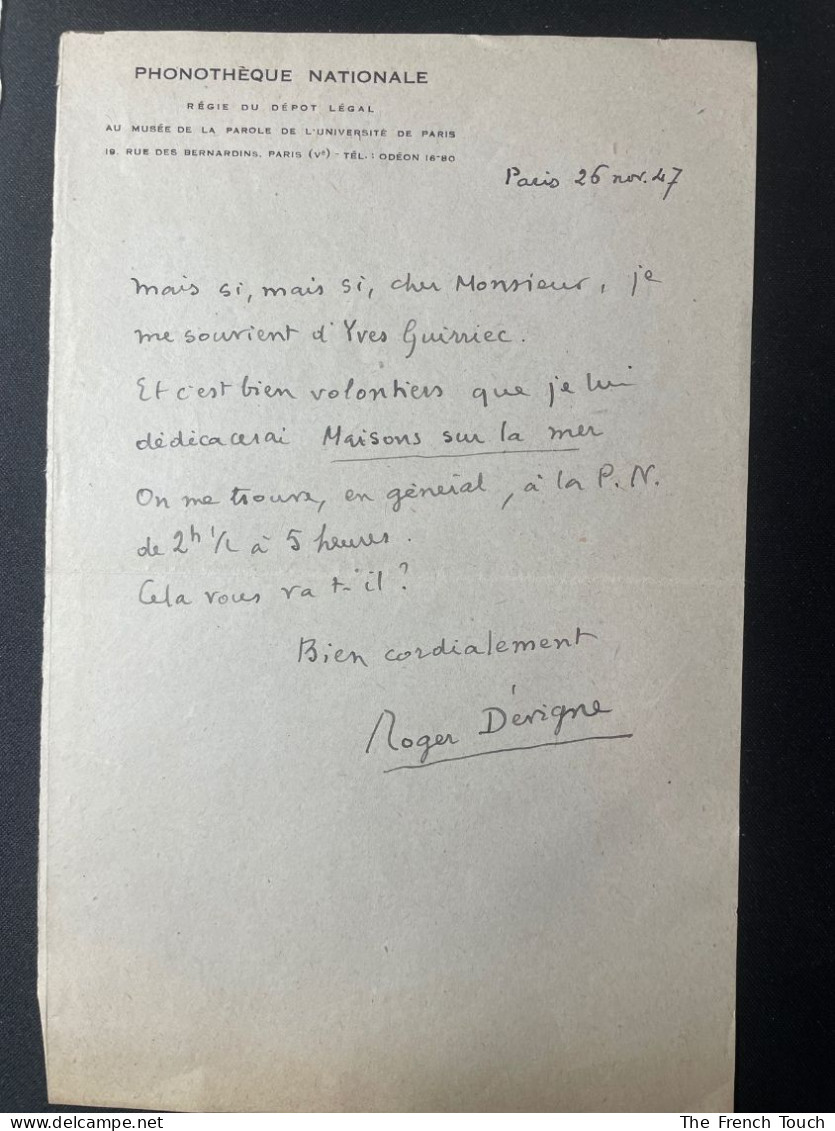 PHONOTHÈQUE NATIONALE
RÉGIE DU DÉPOT LÉGAL
AU MUSÉE DE LA PAROLE DE L'UNIVERSITÉ DE PARIS
19, RUE DES BERNARDINS, PARIS (Vᵉ) - TÉL. : ODÉON 16-80
Paris 26 nov. 47
Mais si, mais si, cher Monsieur, je
me souvient d'Yves Guirriec.
Et c'est bien volontiers que je lui
dédicacerai Maisons sur la mer
On me trouve, en général, à la P.N.
de 2h 1/2 à 5 heures.
Cela vous va t-il ?
Bien cordialement
Roger Dévigne
delcampe.net
The French Touch